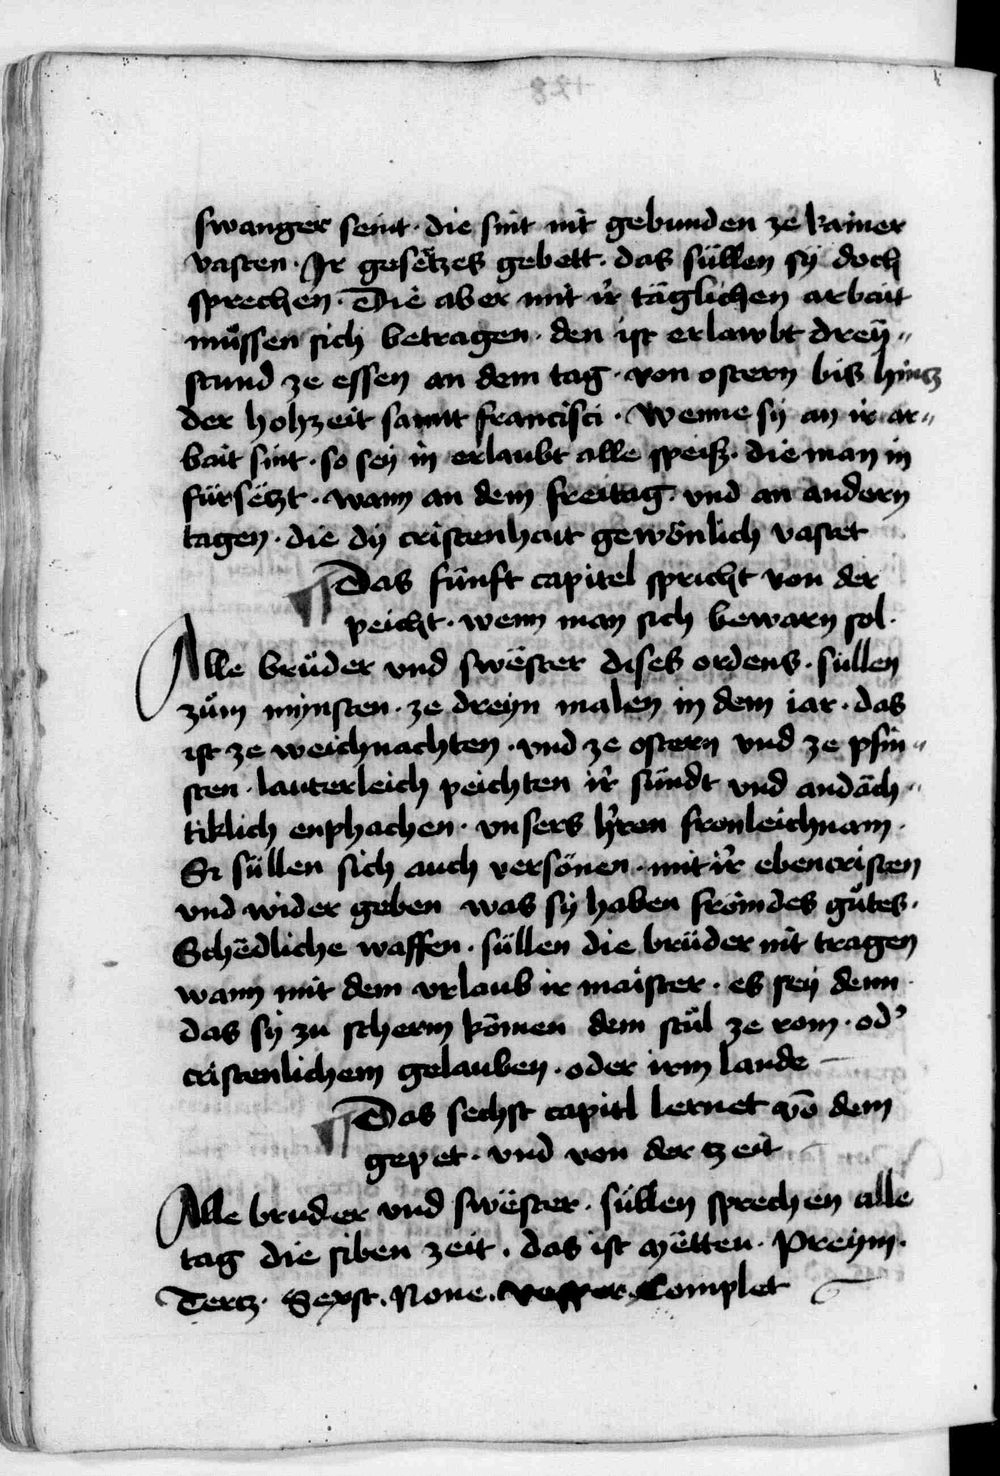 swanger seint · die sint nit gebunden ze kainer
vasten · Ir gesëtzes gebett · das süllen sÿ doch
sprechen · Die aber mit ir täglichen arbait
müssen sich betragen · den ist erlawbt dreÿ //
stund ze essen an dem tag · von ostern bis hintz
der hohzeit sannt francisci · Wenne sÿ an ir ar //
bait sint · so seÿ in erlaubt alle speiß · die man in
fürsëtzt · wann an dem freitag · vnd an andern
tagen · die dÿ cristenhait gewönlich vastet
¶ Das fünft capitel spricht von der
peicht · wenn man sich bewarn sol ·
Alle brüder vnd swëster dises ordens · süllen
zům mÿnsten · ze dreÿn malen in dem iar · das
ist ze weichnachten · vnd ze ostern vnd ze pfin //
sten · lauterleich peichten ir sündt vnd andäch //
tiklich enphachen · vnsers hren fronleichnam ·
Si süllen sich auch versönen · mit ir ebencristen
vnd wider geben was sÿ haben frömdes gůtes ·
Schëdliche waffen · süllen die brüder nit tragen
wann mit dem vrlaub ir maister · es seÿ denn
das sÿ zu scherm kömen dem stůl ze rom · od'
cristenlichem gelauben · oder irm lande
¶ Das sechst capitl lernet võ dem
gepet · vnd von der tzeit
Alle bruder vnd swëster · süllen sprechen alle
tag die siben zeit · das ist mëtten · Preÿm ·
Tertz · Sexst · None · Vesper · Complet